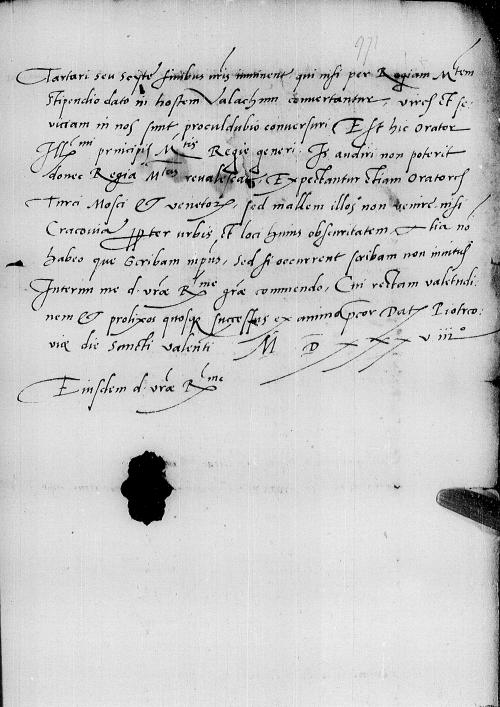 971
Tartari seu Scyte finibus nris imminent qui nisi per Regiam Mtem
stipendio dato in hostem Valachum convertantur, vires et se-
viciam in nos sunt proculdubio conversuri Est hic Orator
Illmi principis Mtis Regie generi. Is audiri non poterit
donec Regia Mtas revalescat, Expectantur etiam Oratores
Turci Mosci et Venetor, sed mallem illos non venire nisi
Cracoviã ppter urbis et loci huius obscuritatem, Alia nõ
habeo que scribam, sed si occurrent scribam non invitus
Interim me d. vrãe Rme grãe commendo, Cui rectam valetudi-
nem et prolixos successus ex animo pcor Dat Piotrco-
viæ die Sancti Valenti M D x x x v iiio
Eiusdem d. vrãe Rme